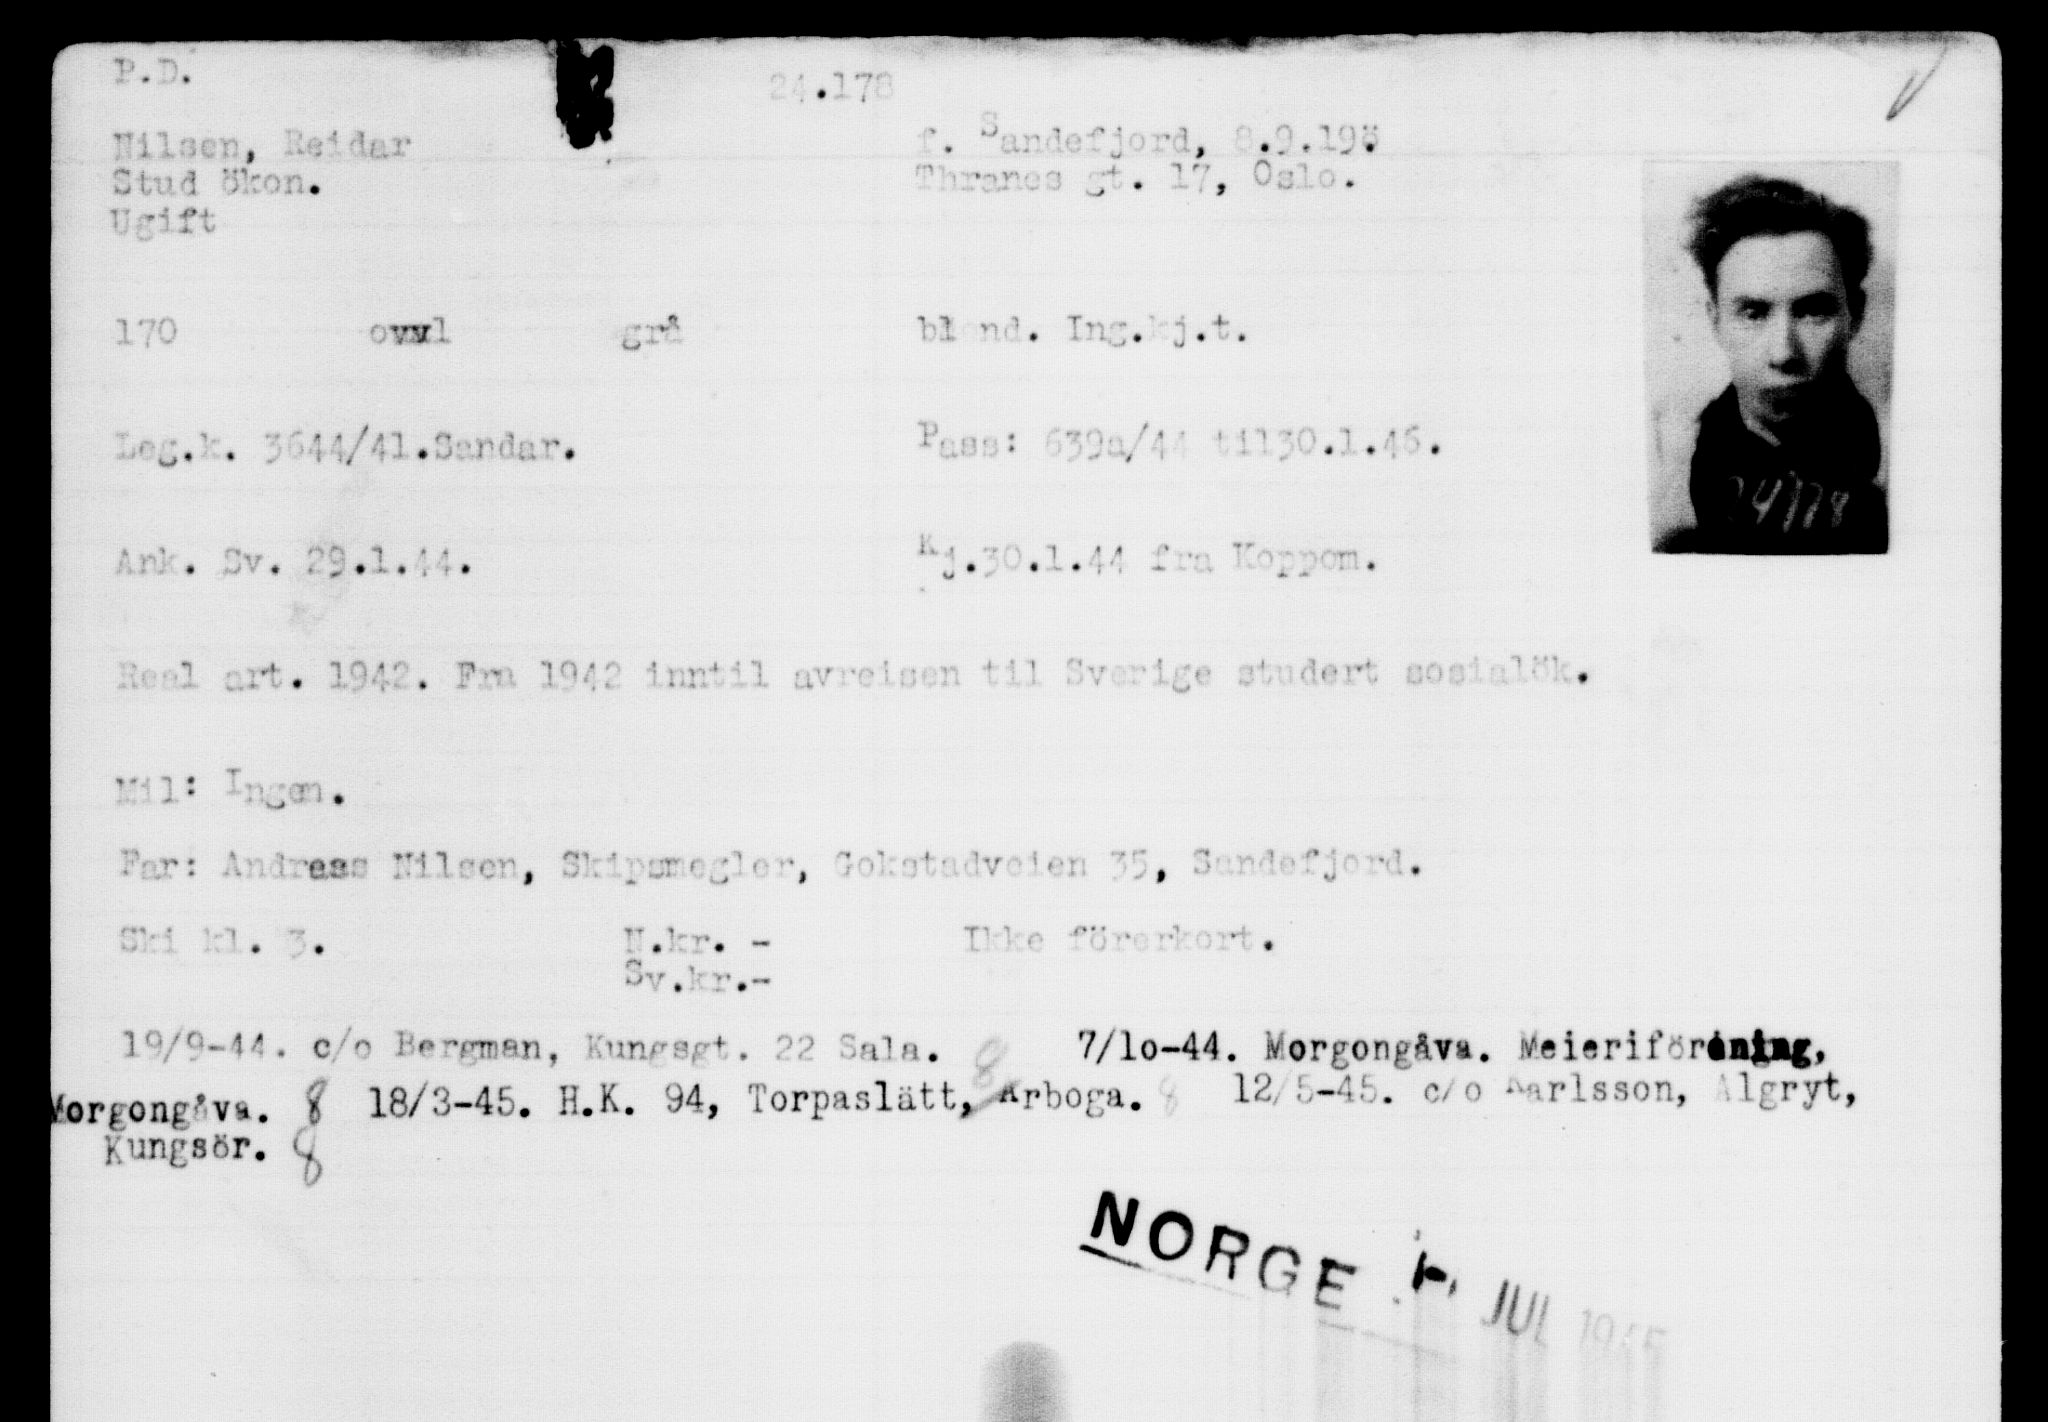 P.D.
24.178
Nilsen, Reidar
f. Sandefjord, 8.9.19
Stud ökon.
Thranes gt. 17, Oslo.
Ugift
170 grå blond. Ing.kj.t.
Leg.k. 3644/41.Sandar.
Pass: 639a/44 til30.1.46.
24178
Ank. Sv. 29.1.44.
Kj.30.1.44 fra Koppom.
Real art. 1942. Fra 1942 inntil avreisen til Sverige studert sosialök.
Mil: Ingen.
Far: Andreas Nilsen, Skipsmegler, Gokstadveien 35, Sandefjord.
Ski kl. 3. N.kr. - Ikke förerkort.
Sv.kr.-
19/9-44. c/o Bergman, Kungsgt. 22 Sala. 8 7/lo-44. Morgongåva. Meieriförening,
Morgongåva. 8 18/3-45. H.K. 94, Torpaslätt, Arboga. 8 12/5-45. c/o Karlsson, Algryt,
Kungsör. 8
NORGE JUL